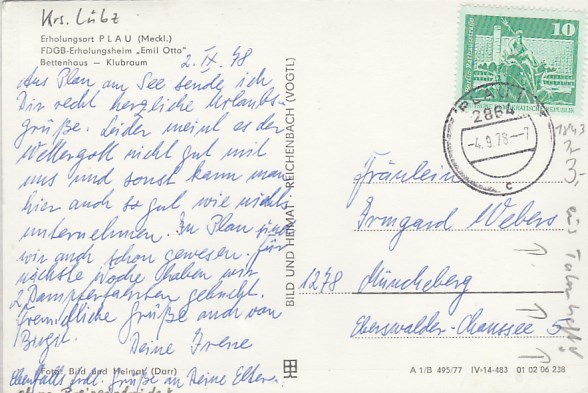 Krs. Lübz
Erholungsort PLAU (Meckl.)
FDGB-Erholungsheim „Emil Otto"
Bettenhaus — Klubraum
2. IX. 78
Aus Plau am See sende ich
Dir recht herzliche Urlaubs-
grüße. Leider meint es der
Wettergott nicht gut mit
uns und sonst kann man
hier auch so gut wie nichts
unternehmen. In Plau sind
wir auch schon gewesen. Für
nächste Woche haben wir
2 Dampferfahrten gebucht.
Freundliche Grüße auch von
Birgit.
Deine Irene
Foto: Bild und Heimat (Darr)
Ebenfalls frdl. Grüße an Deine Eltern.
BILD UND HEIMAT REICHENBACH (VOGTL)
10
PLAU
2864
-4.9.78-7
c
Fräulein
Irmgard Webers
1278 Müncheberg
Eberswalder-Chaussee 5
A 1/B 495/77 IV-14-483 01 02 06 238